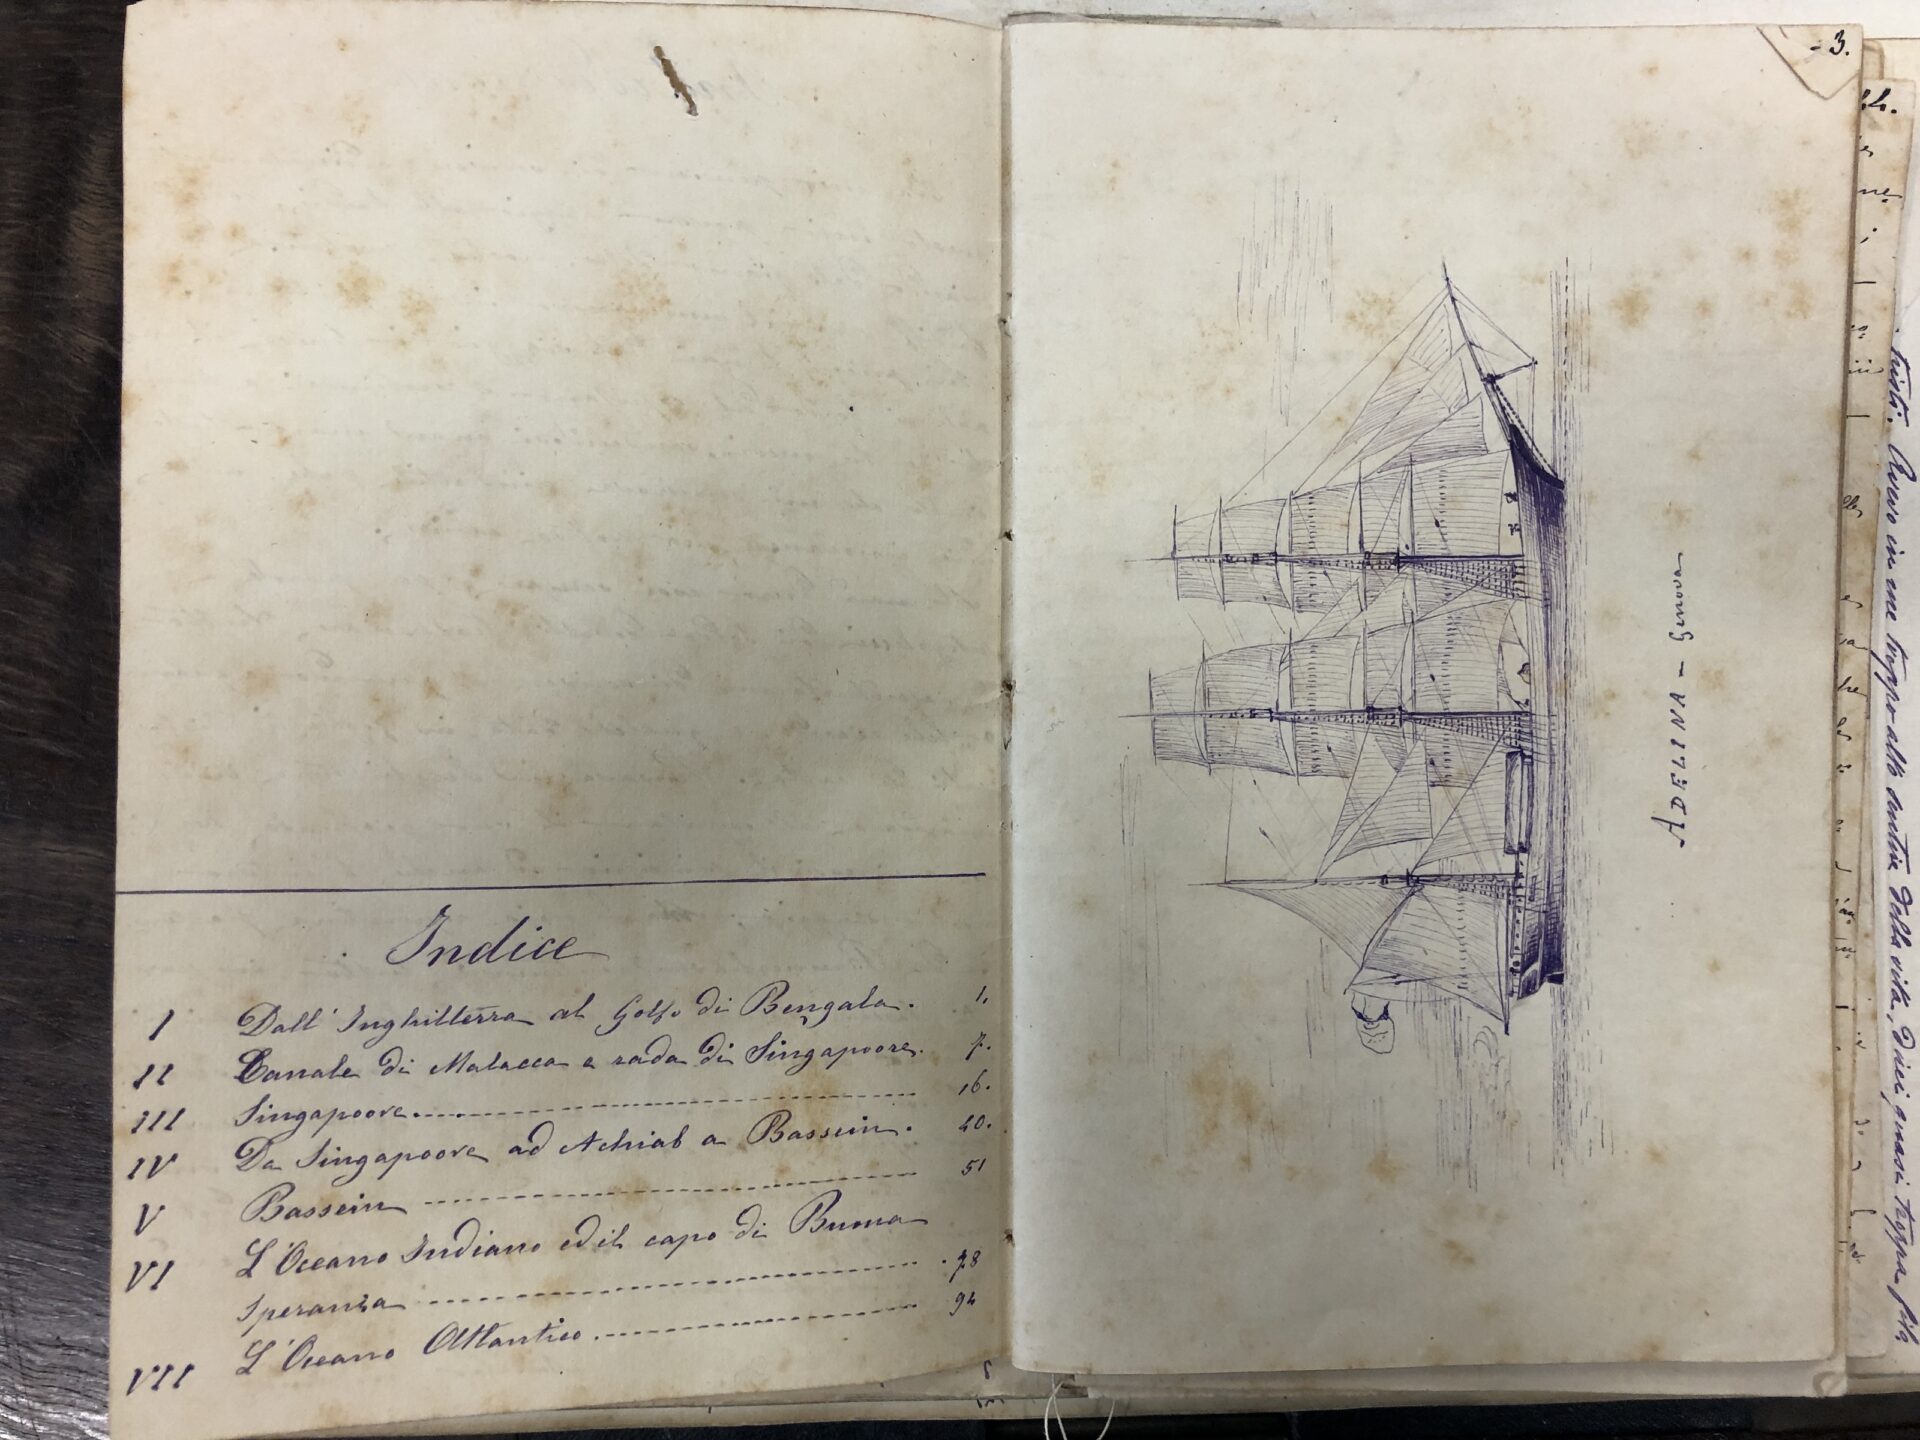 Indice
I Dall' Inghilterra al Golfo di Bengala. 1.
II Canale di Malacca e rada di Singapoore. 7.
III Singapoore. 16.
IV Da Singapoore ad Achiab a Bassein. 40.
V Bassein 51
VI L'Oceano Indiano ed il capo di Buona
Speranza . 78
VII L'Oceano Atlantico. 94
- 3.
ADELINA - Genova
tristi. Avevo in me troppo alto sentire della vita, dirci quasi troppa